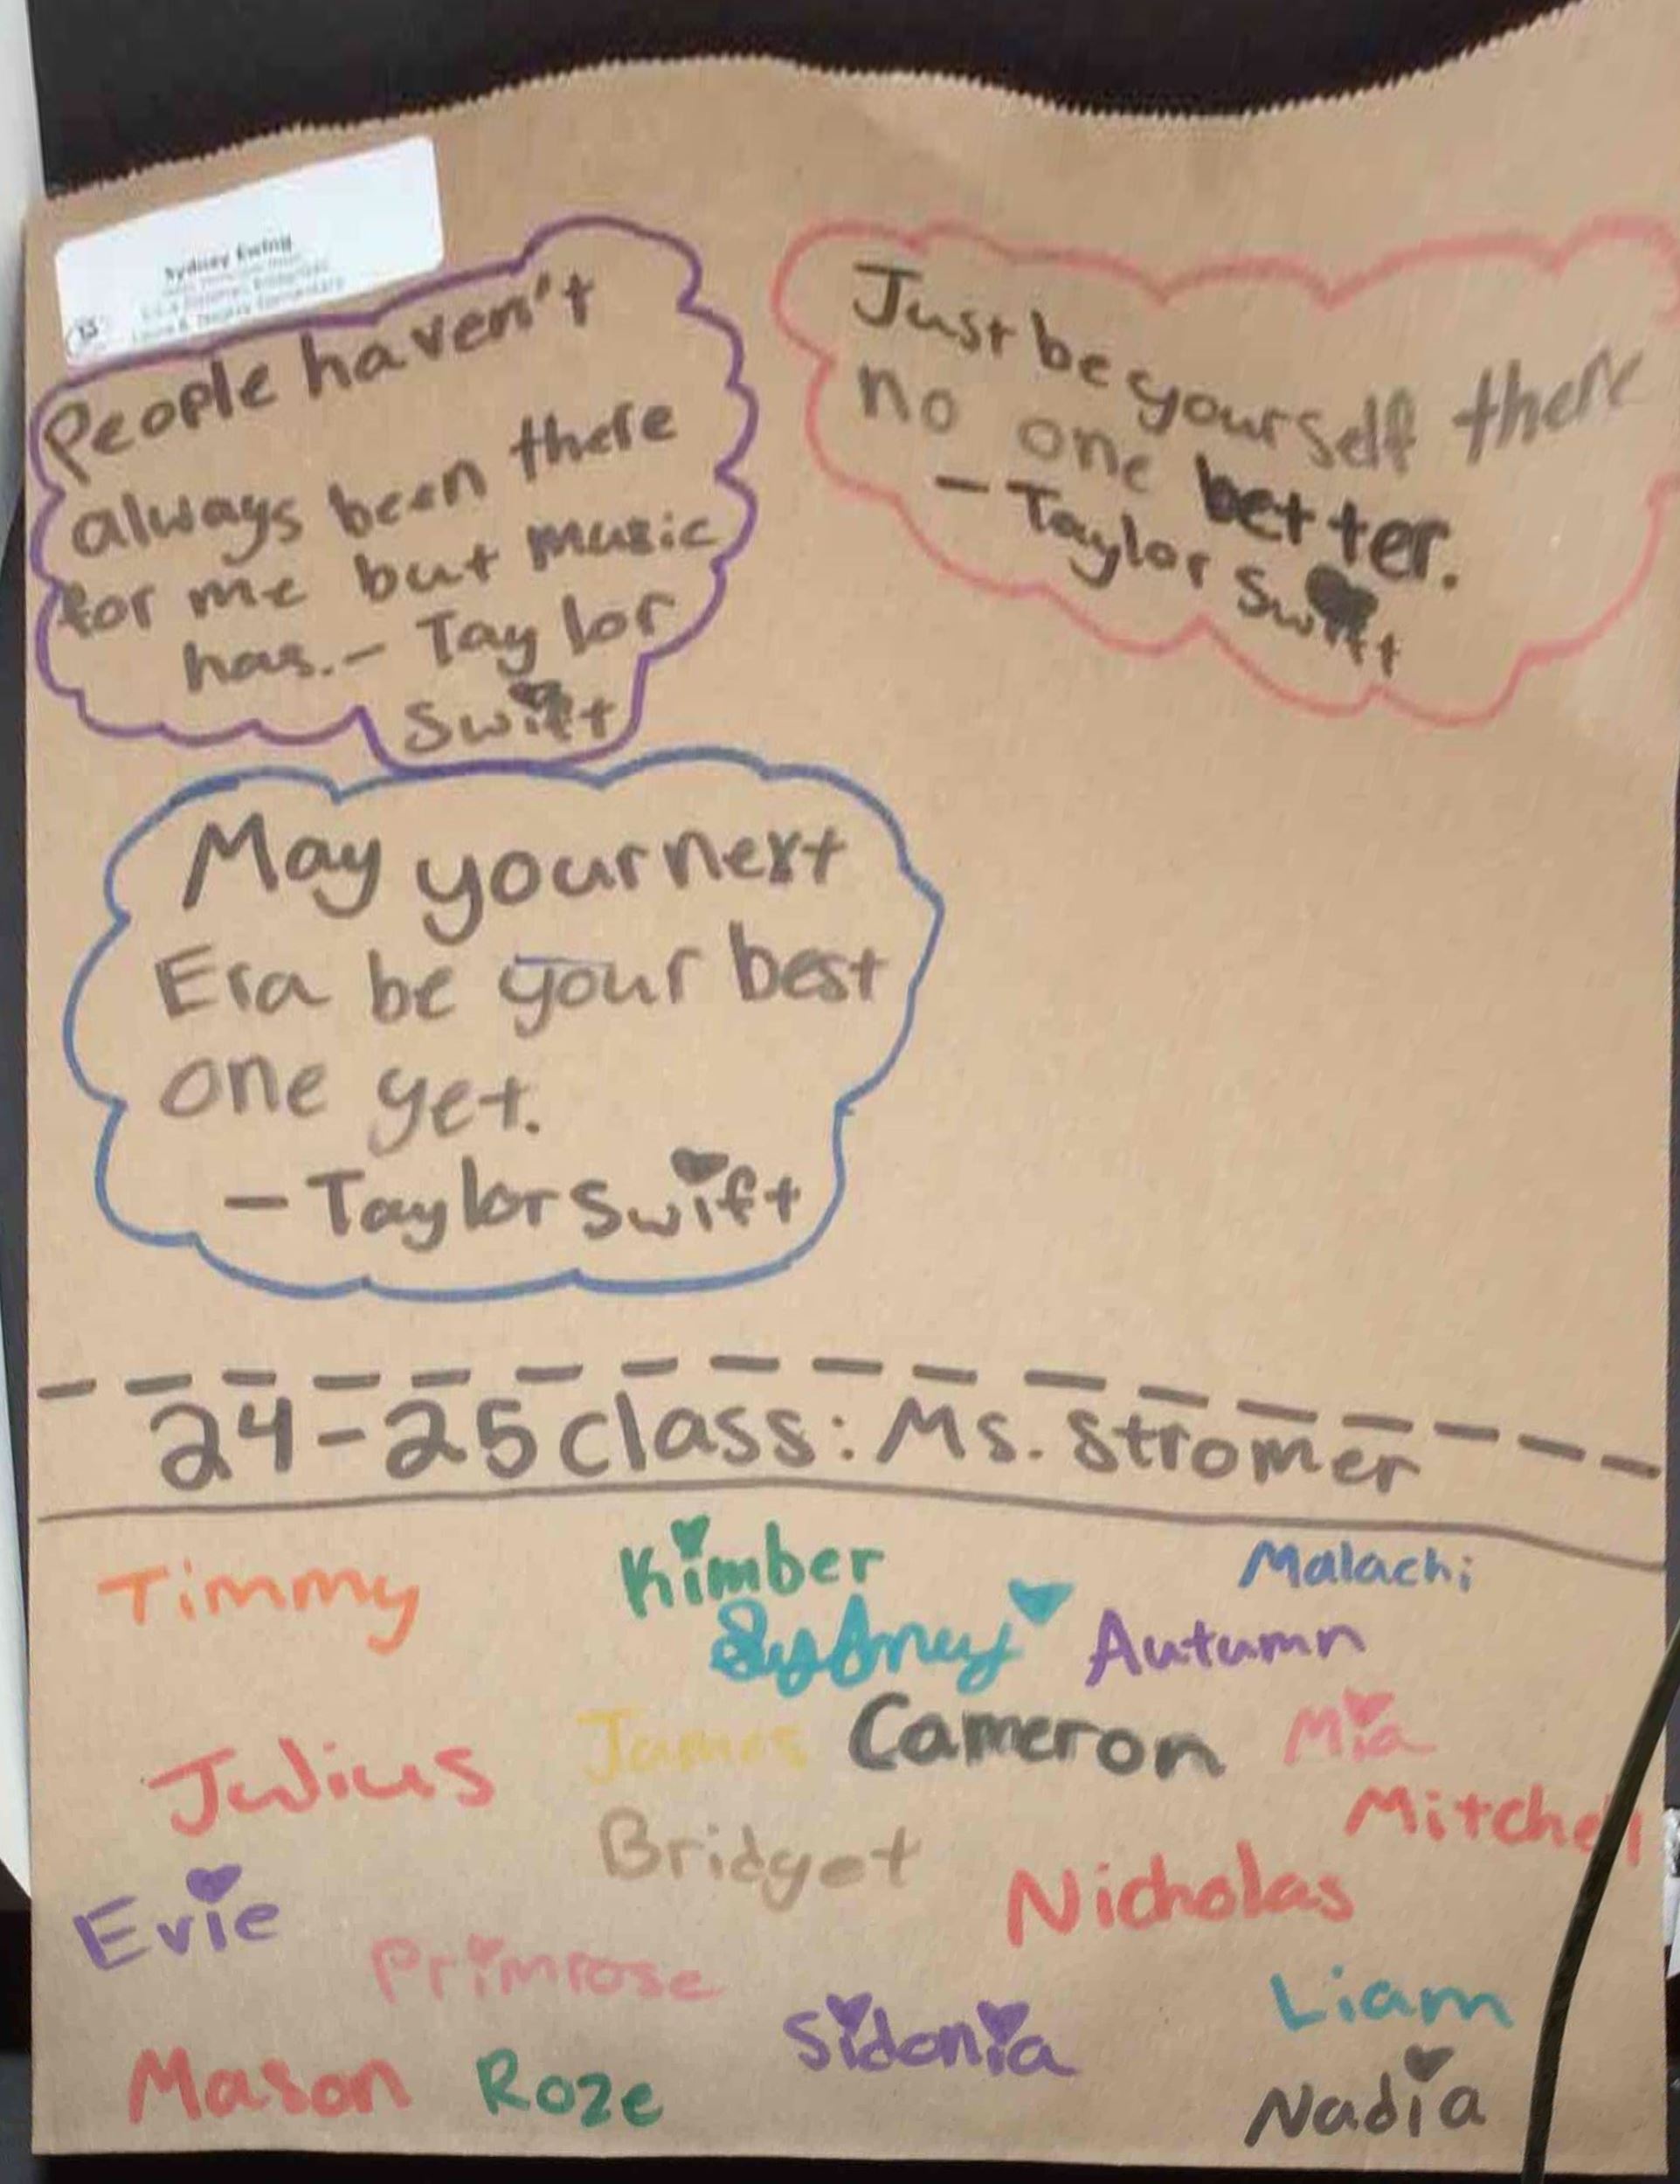 Sydney Ewing
13
People haven't
always been there
for me but music
has. - Taylor
Swift
Just be yourself there
no one better.
- Taylor Swift
May your next
Era be your best
one yet.
- Taylor Swift
24-25 class: Ms. Stromer
Timmy
Kimber
Malachi
Sydney
Autumn
Julius
James
Cameron
Mia
Mitchell
Bridget
Evie
Nicholas
Primrose
Liam
Sidonia
Mason
Roze
Nadia